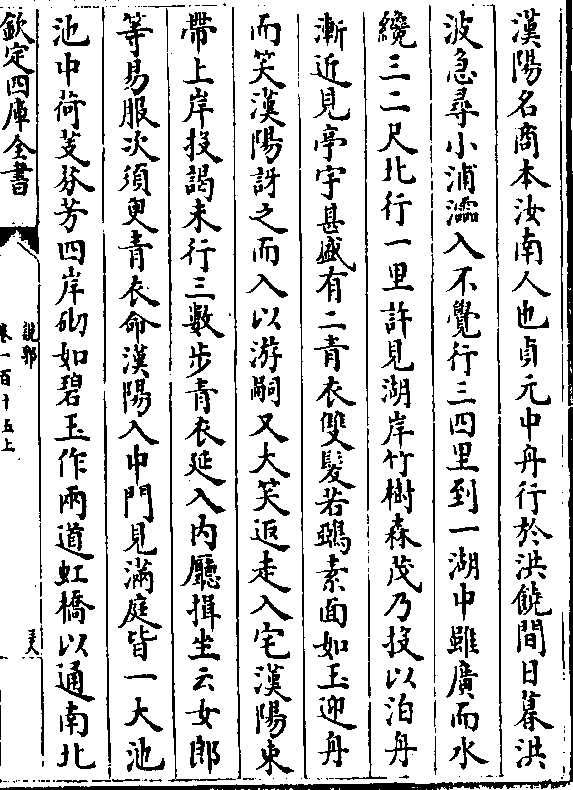 漢陽名商本汝南人也貞元中舟行於洪饒間日暮洪
波急尋小浦濡入不覺行三四里到一湖中雖廣而水
纔三二尺北行一里許見湖岸竹樹森茂乃投以泊舟
漸近見亭宇甚盛有二青衣雙髮若鵶素面如玉迎舟
而笑漢陽訝之而入以游嗣又大笑返走入宅漢陽束
帶上岸投謁未行三數步青衣延入内廳揖坐云女郎
等易服次須臾青衣命漢陽入中門見滿庭皆一大池
池中荷芰芬芳四岸砌如碧玉作兩道虹橋以通南北
欽定四庫全書
說郛
卷一百十五上